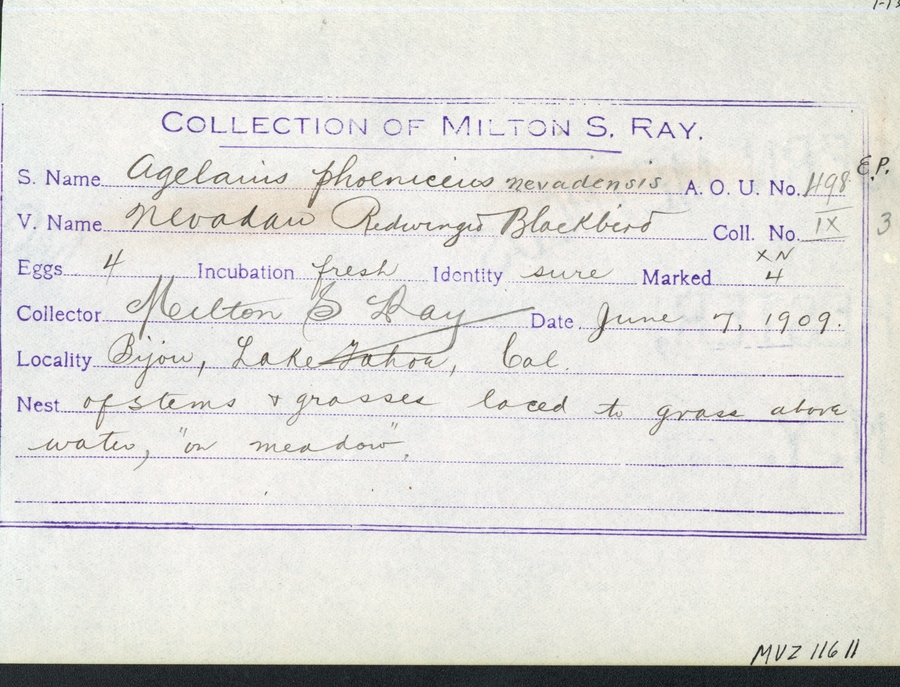 COLLECTION OF MILTON S. RAY.
E.P.
S. Name Agelaius phoeniceus nevadensis A. O. U. No. 498
V. Name Nevadan Redwinged Blackbird Coll. No. IX 3
Eggs 4 Incubation fresh Identity sure Marked XN 4
Collector Milton S Ray Date June 7, 1909.
Locality Bijou, Lake Tahoe, Cal.
Nest of stems & grasses laced to grass above
water, "on meadow".
MVZ 11611